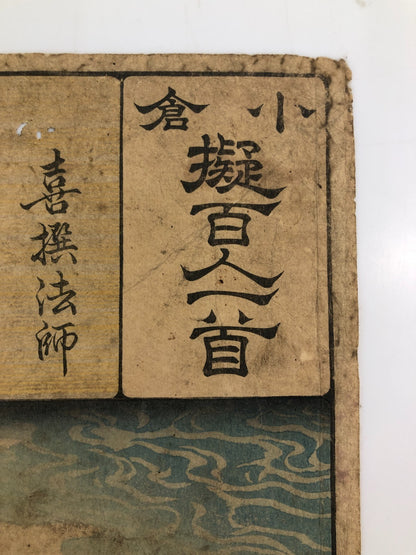 小倉
擬百人一首
喜撰法師